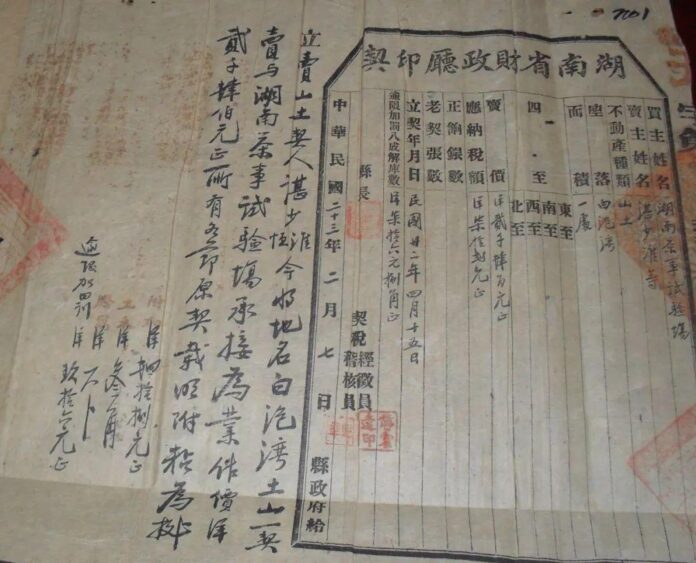 7001
湖南省財政廳印契
買主姓名 湖南茶事試验場
賣主姓名 湛少淮等
不動產種類 山土
座落 白泡湾
面積 一處
東至
南至
四至
西至
北至
賣價 洋貳千肆百元正
應納稅額
正餉銀數
老契張數
立契年月日 民國廿二年四月十五日
逾限加罰八成解庫數 洋柒拾六元捌角正
縣長
契稅經徵員
稽核員
中華民國二十三年二月七日
縣政府給
立賣山土契人湛少淮恆今将地名白泡湾土山一契
賣与湖南茶事試验場承接為業作價洋
貳千肆佰元正所有
即原契載明附粘為
洋
拾捌元正
洋叁角
逾限加罰洋
洋玖拾六元正